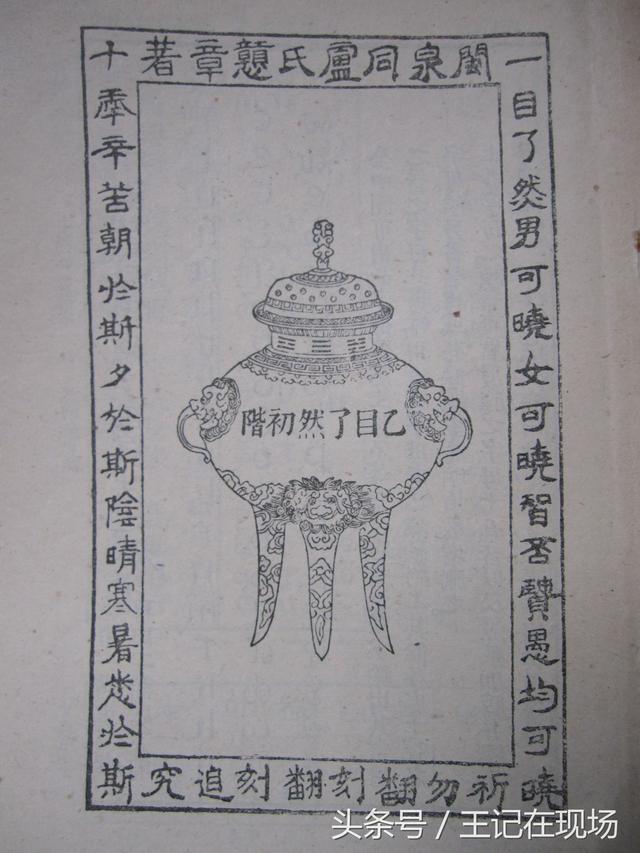 閩泉同盧氏戇章著
一目了然男可曉女可曉智否賢愚均可曉
十秊辛苦朝於斯夕於斯陰晴寒暑悉於斯
祈勿翻刻翻刻追究
乙目了然初階
头条号 / 王记在现场